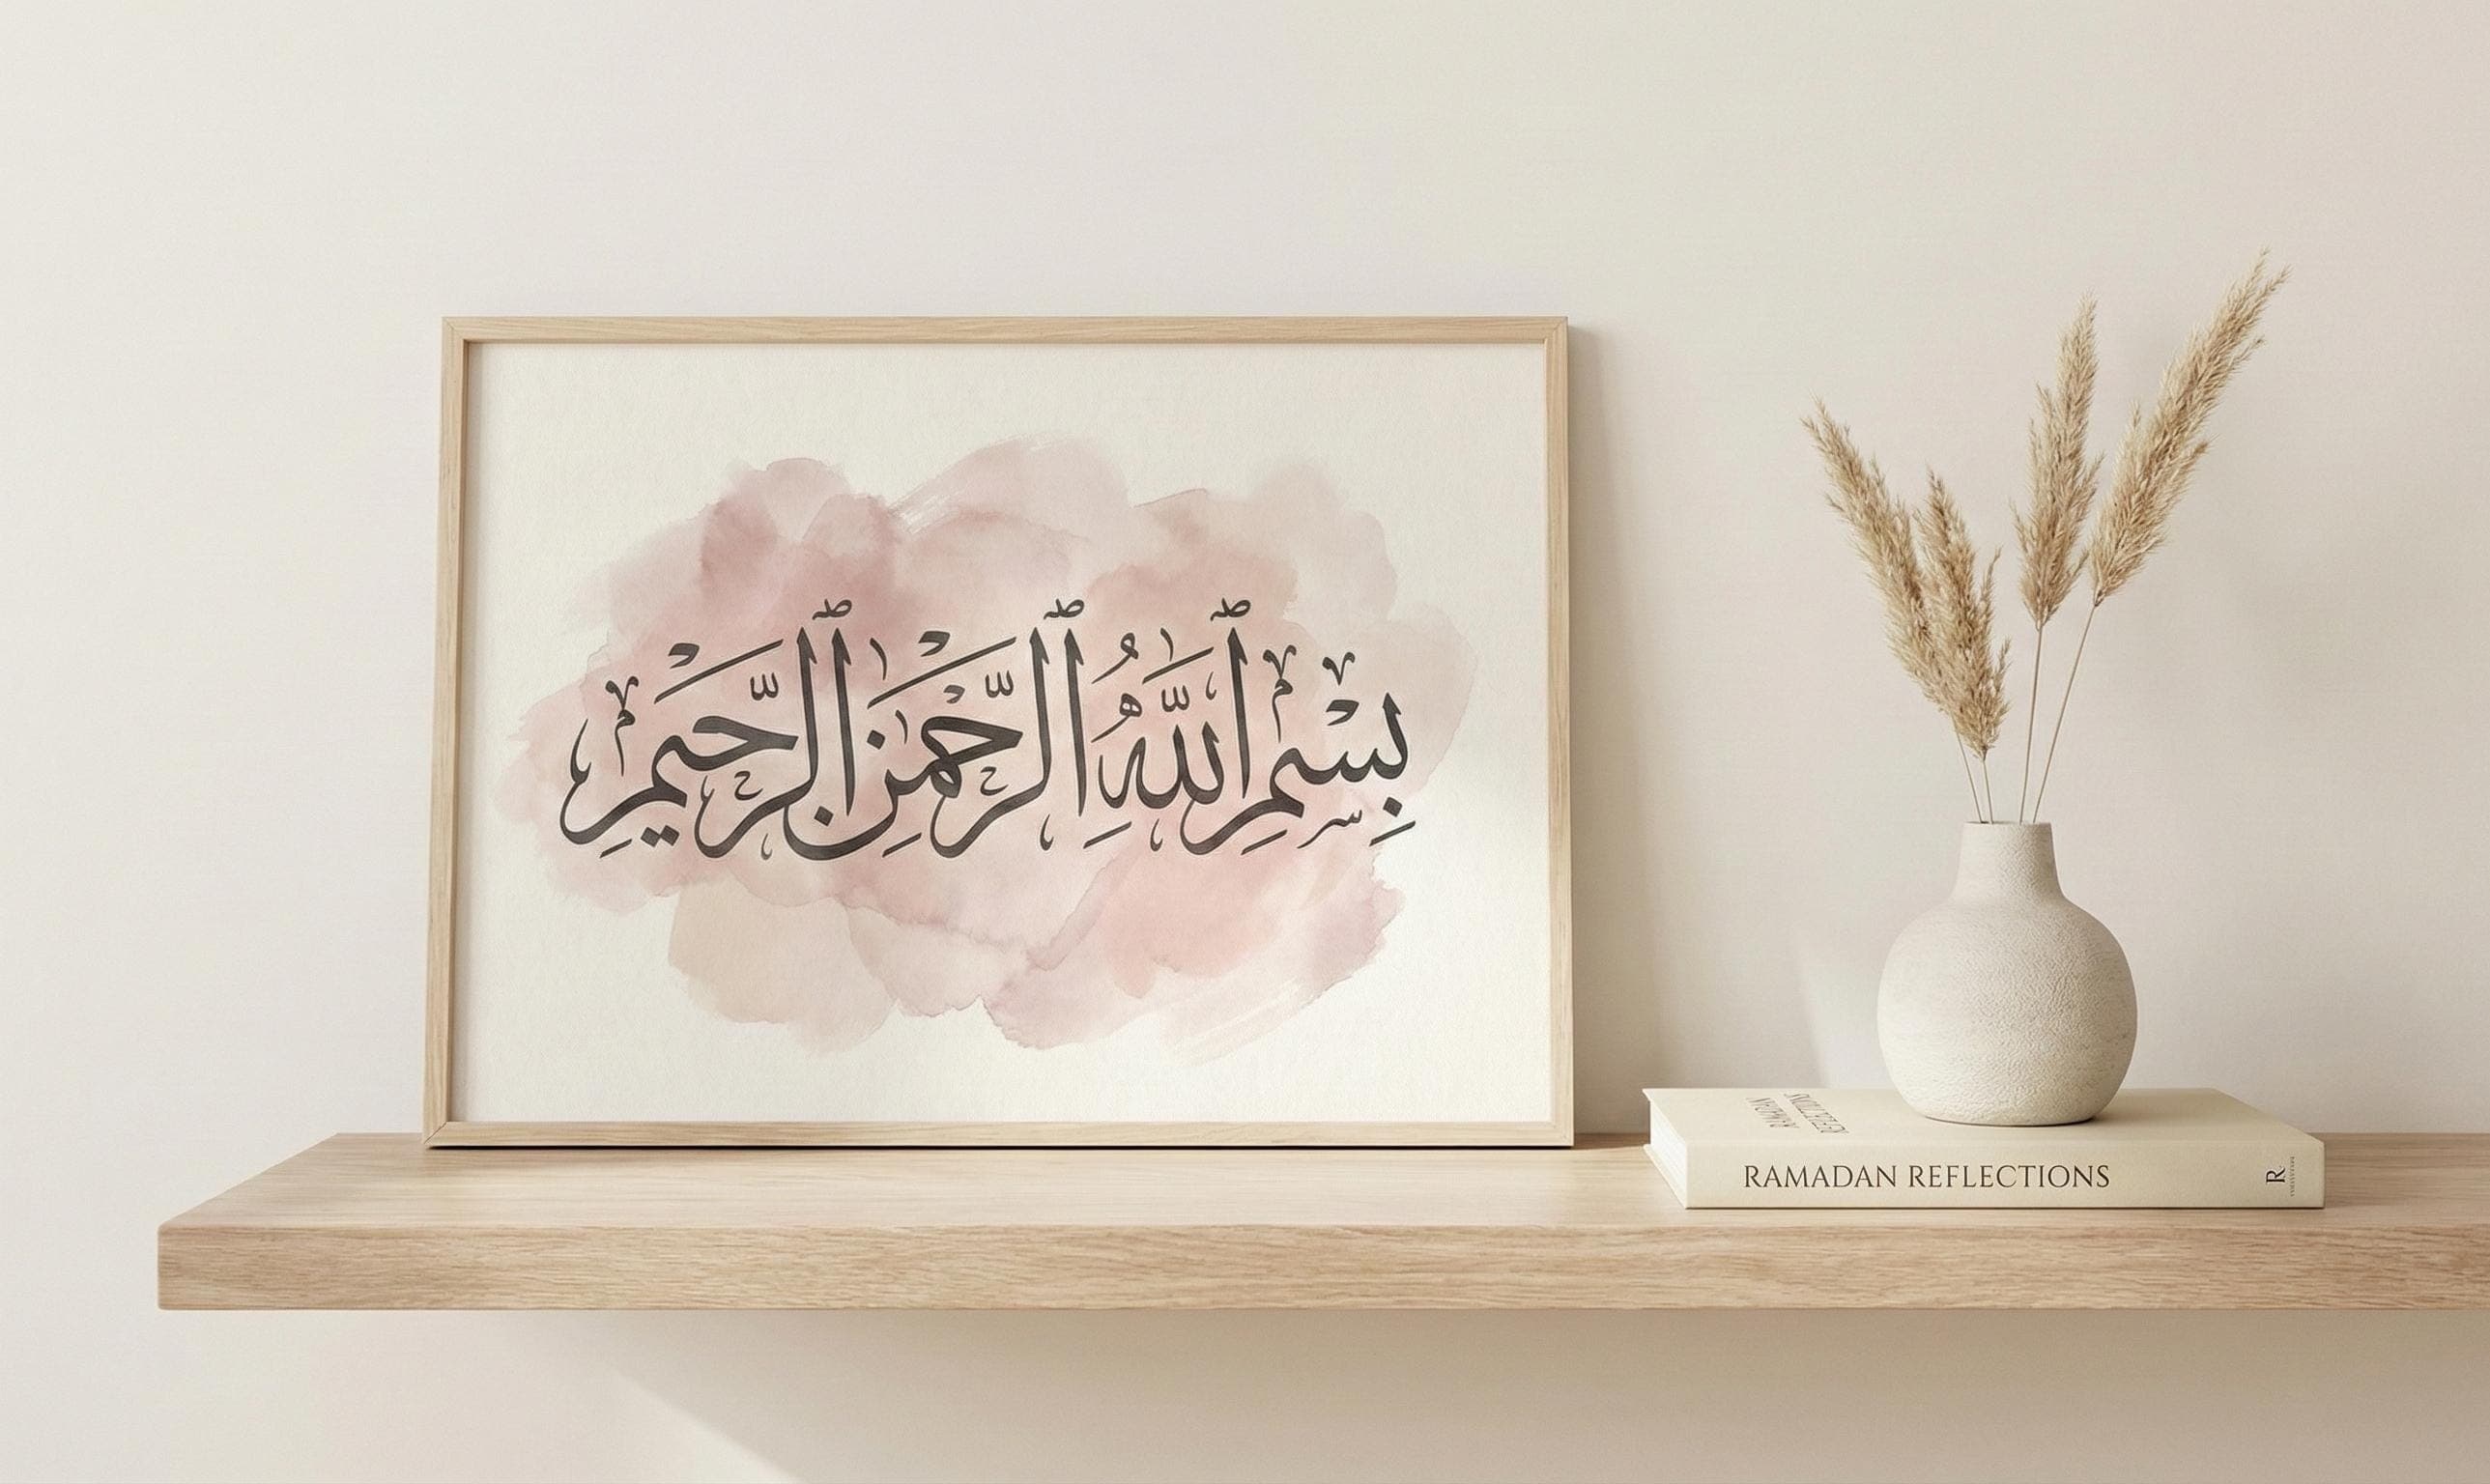 بِسْمِ ٱللَّهِ ٱلرَّحْمَٰنِ ٱلرَّحِيمِ
RAMADAN
REFLECTIONS
RAMADAN REFLECTIONS
R